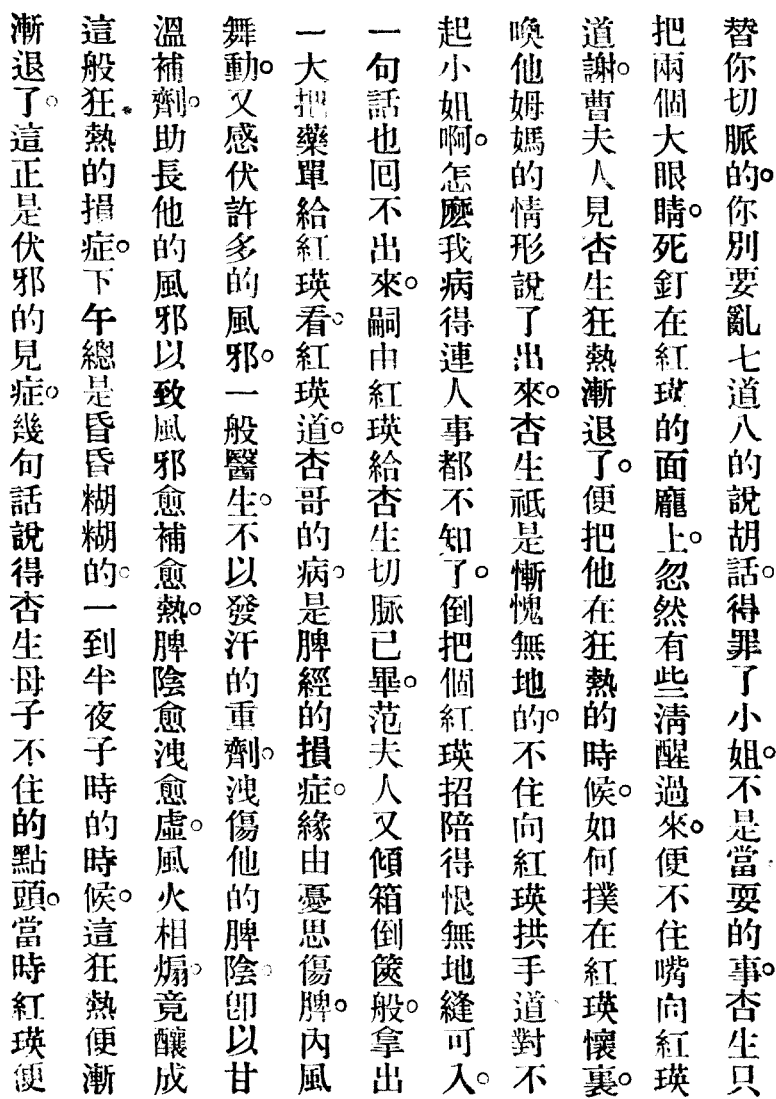 替你切脈的。你別要亂七道八的說胡話。得罪了小姐。不是當耍的事。杏生只
把兩個大眼睛。死釘在紅瑛的面龐上。忽然有些淸醒過來。便不住嘴向紅瑛
道謝。曹夫人見杏生狂熱漸退了。便把他在狂熱的時候。如何撲在紅瑛懷裏。
喚他姆媽的情形說了出來。杏生祇是慚愧無地的。不住向紅瑛拱手道對不
起小姐啊。怎麽我病得連人事都不知了。倒把個紅瑛招陪得恨無地縫可入。
一句話也囘不出來。嗣由紅瑛給杏生切脈已畢。范夫人又傾箱倒篋般。拿出
一大把藥單給紅瑛看。紅瑛道。杏哥的病。是脾經的損症。緣由憂思傷脾。內風
舞動。又感伏許多的風邪。一般醫生。不以發汗的重劑。洩傷他的脾陰。卽以甘
溫補劑。助長他的風邪以致風邪愈補愈熱。脾陰愈洩愈虛。風火相煽。竟釀成
這般狂熱的損症。下午總是昏昏糊糊的。一到半夜子時的時候。這狂熱便漸
漸退了。這正是伏邪的見症。幾句話說得杏生母子不住的點頭。當時紅瑛便